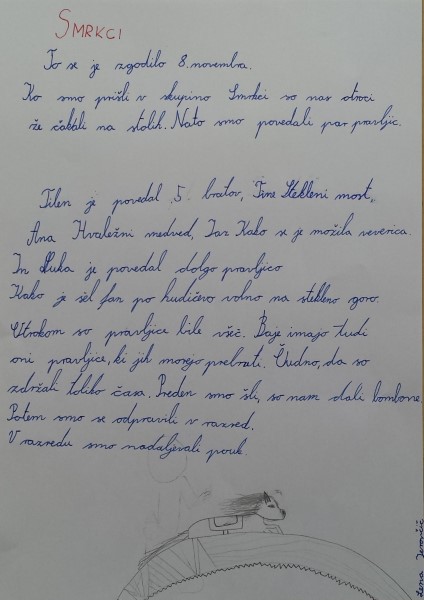 SMRKCI
To se je zgodilo 8. novembra.
Ko smo prišli v skupino Smrkci so nas otroci
že čakali na stolih. Nato smo povedali par pravljic.
Tilen je povedal „5. bratov, Tine Stekleni most„
Ana Hvaležni medved, Jaz Kako se je možila veverica.
In Luka je povedal dolgo pravljico
Kako je šel fan po hudičevo volno na stekleno goro.
Otrokom so pravljice bile všeč. Baje imajo tudi
oni pravljice, ki jih morejo prebrati. Čudno, da so
zdržali toliko časa. Preden smo šli, so nam dali bombone.
Potem smo se odpravili v razred.
V razredu smo nadaljevali pouk.
Lena